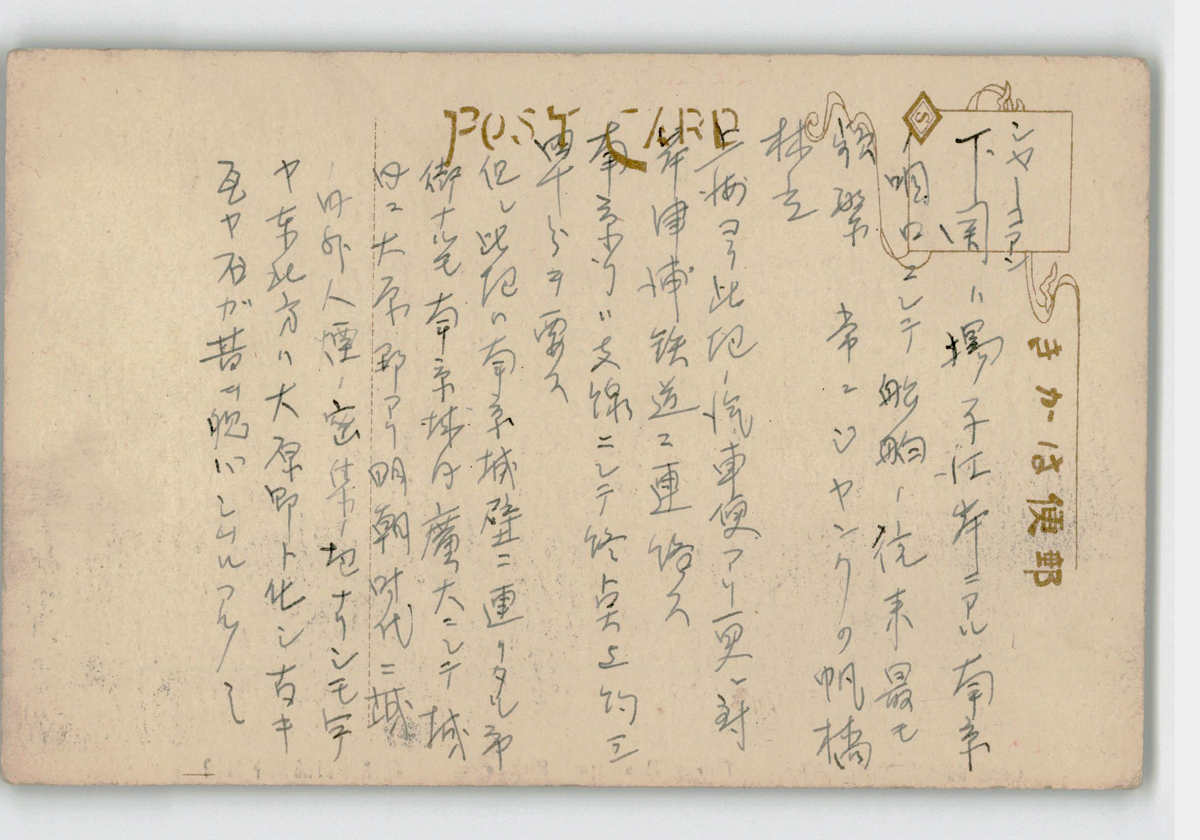 POST CARD
きかは便郵
S
シャーコアン
下関ハ揚子江岸ニアル南京
ノ咽口ニシテ船舶ノ往来最モ
頻繁 常ニジャンクの帆檣
林立
上海ヨリ此処ノ汽車便アリ更ニ対
岸津浦鉄道ニ連絡ス
南京行ハ支線ニシテ終点上約三
四十分ヲ要ス
但シ此処ハ南京城壁ニ連リタル市
街ナルモ南京城内廣大ニシテ城
内ニ大原野アリ明朝時代ニ城
ノ内外人煙ノ密集ノ地ナリシモ今
ヤ東北方ハ大原野ト化シ古キ
瓦ヤ石ガ昔ヲ